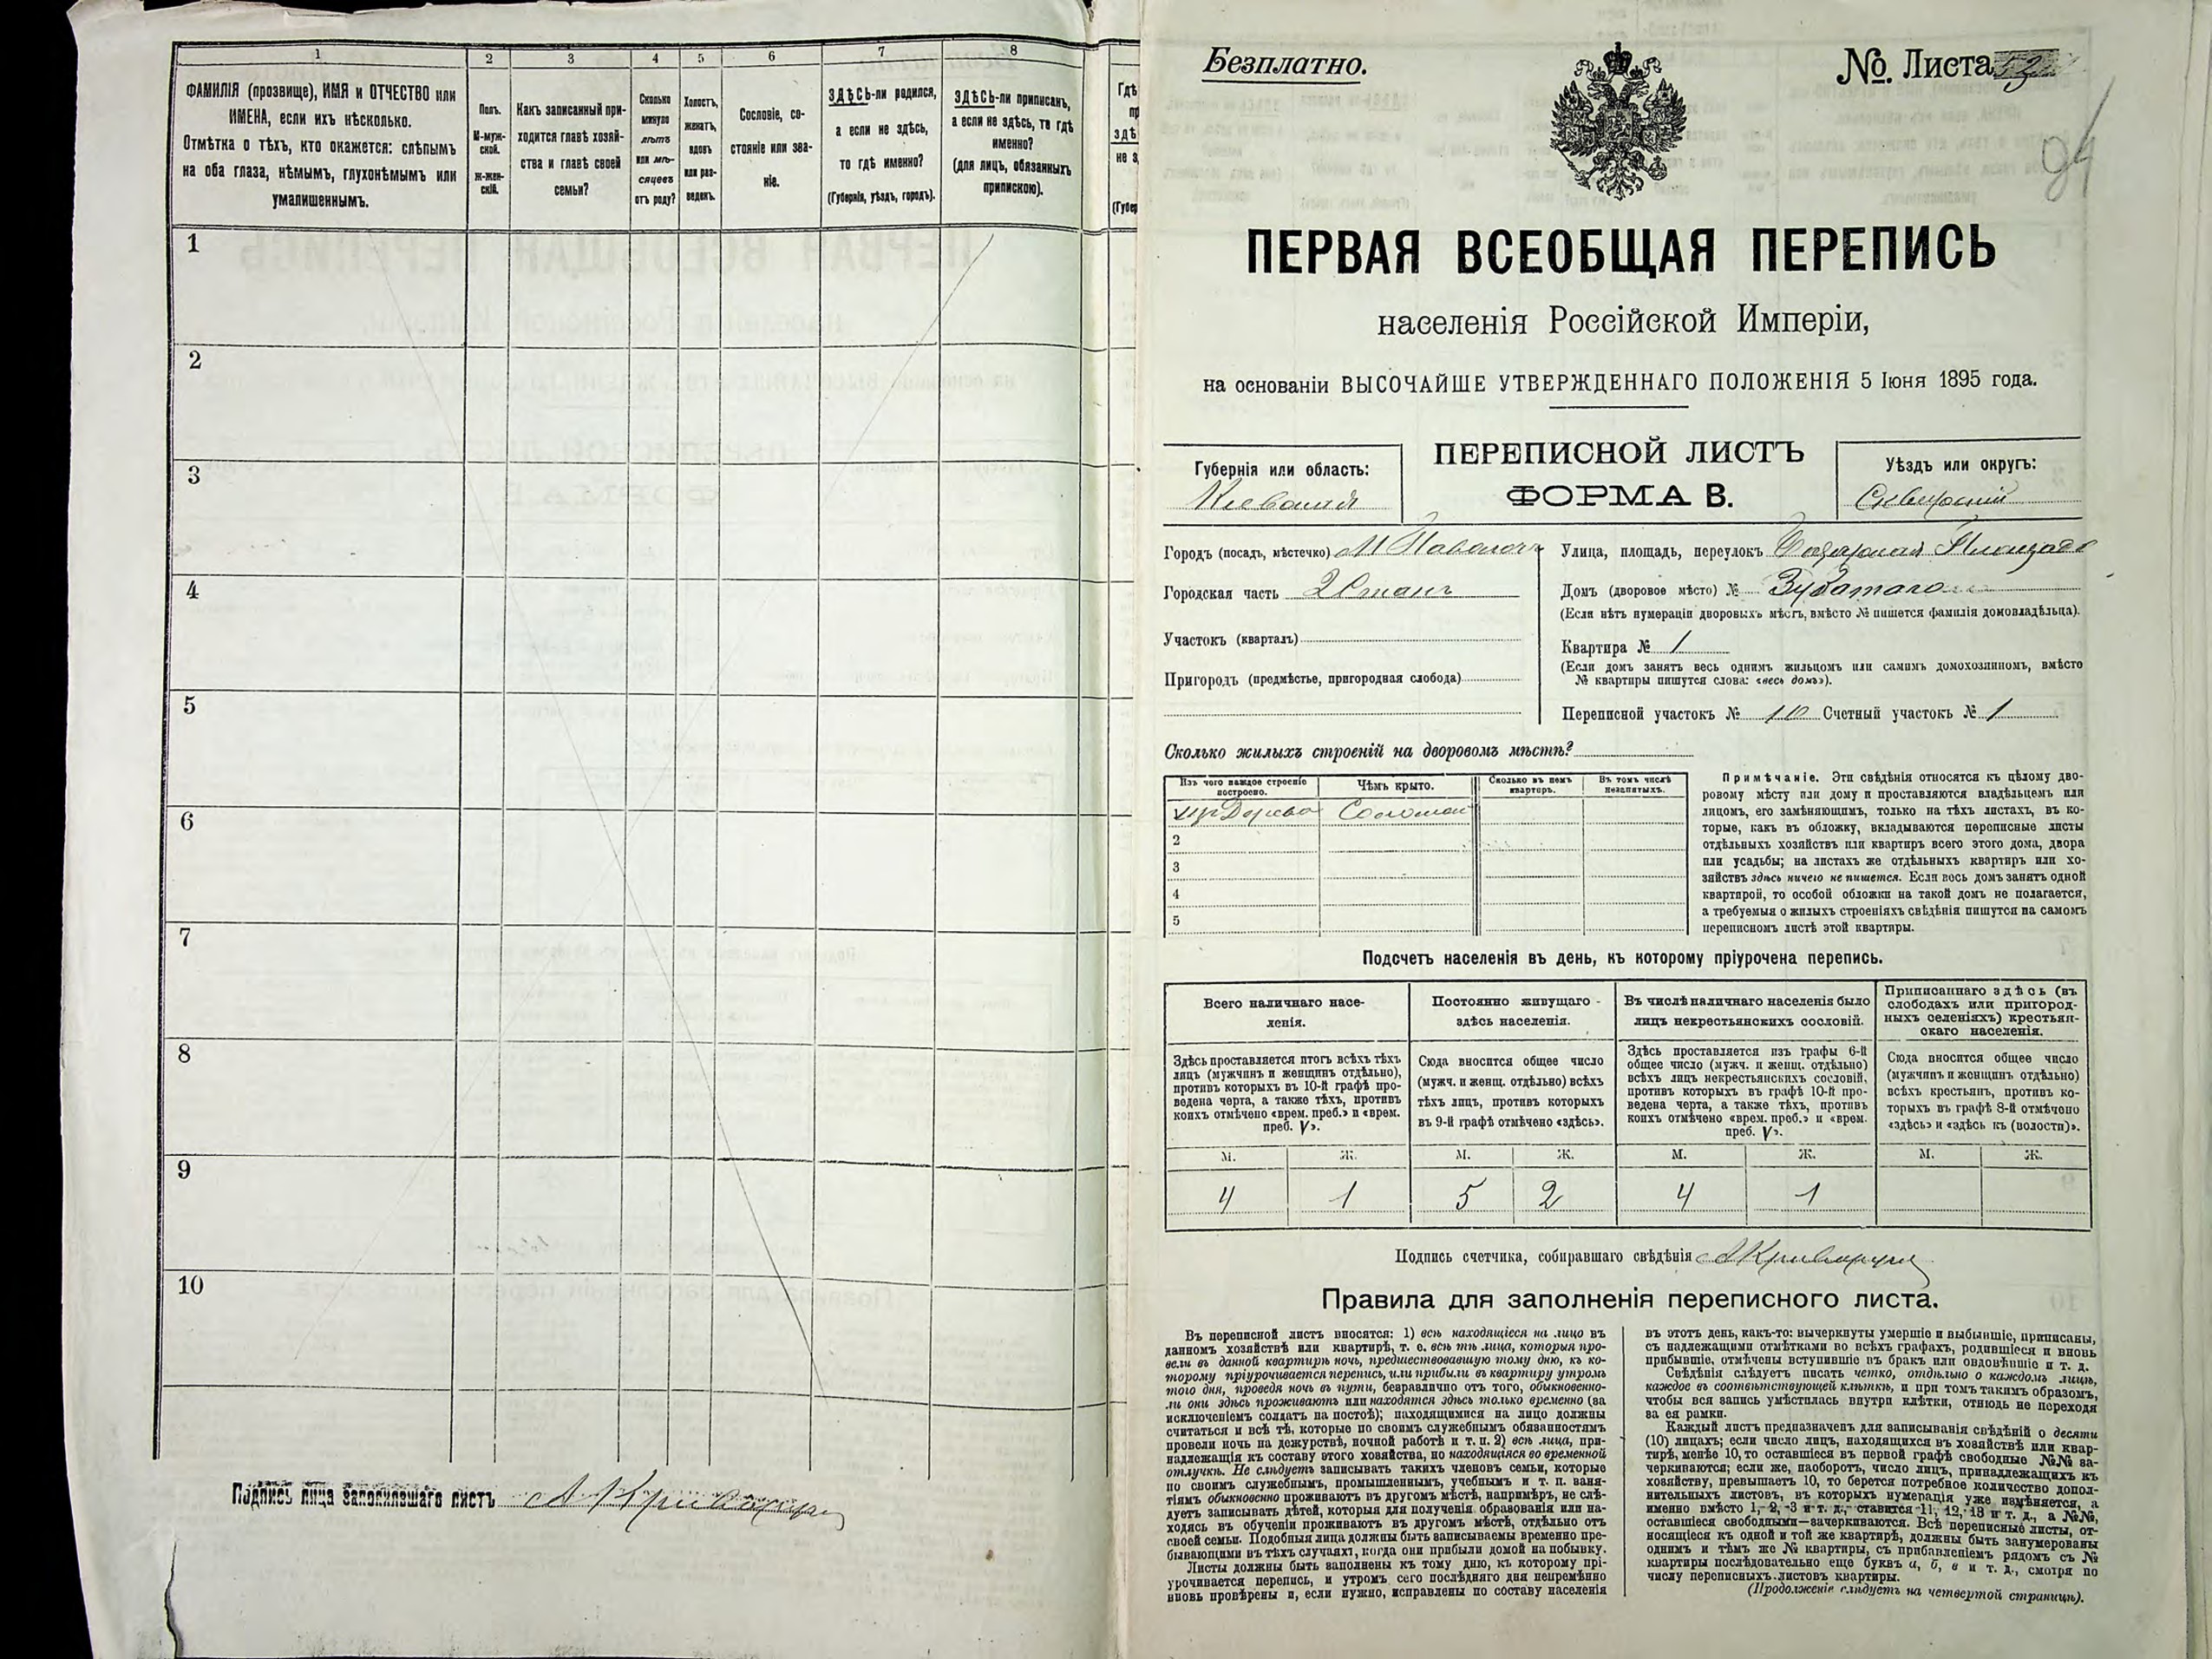 1 2 3 4 5 6 7 8
ФАМИЛІЯ (прозвище), ИМЯ и ОТЧЕСТВО или
ИМЕНА, если ихъ нѣсколько.
Отмѣтка о тѣхъ, кто окажется: слѣпымъ
на оба глаза, нѣмымъ, глухонѣмымъ или
умалишеннымъ.
Полъ.
М-муж-
ской.
Ж-жен-
скій.
Какъ записанный при-
ходится главѣ хозяй-
ства и главѣ своей
семьи?
Сколько
минуло
лѣтъ
или мѣ-
сяцевъ
отъ роду?
Холостъ,
женатъ,
вдовъ
или раз-
веденъ.
Сословіе, со-
стояніе или зва-
ніе.
ЗДѢСЬ-ли родился,
а если не здѣсь,
то гдѣ именно?
(Губернія, уѣздъ, городъ).
ЗДѢСЬ-ли приписанъ,
а если не здѣсь, то гдѣ
именно?
(для лицъ, обязанныхъ
припискою).
1
2
3
4
5
6
7
8
9
10
Подпись лица заполнившаго листъ
Безплатно.
№. Листа
94
ПЕРВАЯ ВСЕОБЩАЯ ПЕРЕПИСЬ
населенія Россійской Имперіи,
на основаніи ВЫСОЧАЙШЕ УТВЕРЖДЕННАГО ПОЛОЖЕНІЯ 5 Іюня 1895 года.
Губернія или область:
Кіевская
ПЕРЕПИСНОЙ ЛИСТЪ
ФОРМА В.
Уѣздъ или округъ:
Сквирскій
Городъ (посадъ, мѣстечко) М Паволочь
Городская часть 2 Станъ
Участокъ (кварталъ)
Пригородъ (предмѣстье, пригородная слобода)
Улица, площадь, переулокъ Базарная Площадь
Домъ (дворовое мѣсто) № Зубатаго
(Если нѣтъ нумераціи дворовыхъ мѣстъ, вмѣсто № пишется фамилія домовладѣльца).
Квартира № 1
(Если домъ занятъ весь однимъ жильцомъ или самимъ домохозяиномъ, вмѣсто
№ квартиры пишутся слова: «весь домъ»).
Переписной участокъ № 10 Счетный участокъ № 1
Сколько жилыхъ строеній на дворовомъ мѣстѣ?
Изъ чего каждое строеніе
построено.
Чѣмъ крыто.
Сколько въ немъ
квартиръ.
Въ томъ числѣ
незанятыхъ.
изъ Дерева Соломой
2
3
4
5
Примѣчаніе. Эти свѣдѣнія относятся къ цѣлому дво-
ровому мѣсту или дому и проставляются владѣльцемъ или
лицомъ, его замѣняющимъ, только на тѣхъ листахъ, въ ко-
торые, какъ въ обложку, вкладываются переписные листы
отдѣльныхъ хозяйствъ или квартиръ всего этого дома, двора
или усадьбы; на листахъ же отдѣльныхъ квартиръ или хо-
зяйствъ здѣсь ничего не пишется. Если весь домъ занятъ одной
квартирой, то особой обложки на такой домъ не полагается,
а требуемыя о жилыхъ строеніяхъ свѣдѣнія пишутся на самомъ
переписномъ листѣ этой квартиры.
Подсчетъ населенія въ день, къ которому пріурочена перепись.
Всего наличнаго насе-
ленія.
Постоянно живущаго
здѣсь населенія.
Въ числѣ наличнаго населенія было
лицъ некрестьянскихъ сословій.
Приписаннаго здѣсь (въ
слободахъ или пригород-
ныхъ селеніяхъ) крестьян-
скаго населенія.
Здѣсь проставляется итогъ всѣхъ тѣхъ
лицъ (мужчинъ и женщинъ отдѣльно),
противъ которыхъ въ 10-й графѣ про-
ведена черта, а также тѣхъ, противъ
коихъ отмѣчено «врем. преб.» и «врем.
преб. V».
Сюда вносится общее число
(мужч. и женщ. отдѣльно) всѣхъ
тѣхъ лицъ, противъ которыхъ
въ 9-й графѣ отмѣчено «здѣсь».
Здѣсь проставляется изъ графы 6-й
общее число (мужч. и женщ. отдѣльно)
всѣхъ лицъ некрестьянскихъ сословій,
противъ которыхъ въ графѣ 10-й про-
ведена черта, а также тѣхъ, противъ
коихъ отмѣчено «врем. преб.» и «врем.
преб. V».
Сюда вносится общее число
(мужчинъ и женщинъ отдѣльно)
всѣхъ крестьянъ, противъ ко-
торыхъ въ графѣ 8-й отмѣчено
«здѣсь» и «здѣсь къ (волости)».
М. Ж. М. Ж. М. Ж. М. Ж.
4 1 5 2 4 1
Подпись счетчика, собиравшаго свѣдѣнія
Правила для заполненія переписного листа.
Въ переписной листъ вносятся: 1) всѣ находящіеся на лицо въ
данномъ хозяйствѣ или квартирѣ, т. е. всѣ тѣ лица, которыя про-
вели въ данной квартирѣ ночь, предшествовавшую тому дню, къ ко-
торому пріурочивается перепись, или прибыли въ квартиру утромъ
того дня, проведя ночь въ пути, безразлично отъ того, обыкновенно-
ли они здѣсь проживаютъ или находятся здѣсь только временно (за
исключеніемъ солдатъ на постоѣ); находящимися на лицо должны
считаться и всѣ тѣ, которые по своимъ служебнымъ обязанностямъ
провели ночь на дежурствѣ, ночной работѣ и т. п. 2) всѣ лица, при-
надлежащія къ составу этого хозяйства, но находящіяся во временной
отлучкѣ. Не слѣдуетъ записывать такихъ членовъ семьи, которые
по своимъ служебнымъ, промышленнымъ, учебнымъ и т. п. заня-
тіямъ обыкновенно проживаютъ въ другомъ мѣстѣ, напримѣръ, не слѣ-
дуетъ записывать дѣтей, которыя для полученія образованія или на-
ходясь въ обученіи проживаютъ въ другомъ мѣстѣ, отдѣльно отъ
своей семьи. Подобныя лица должны быть записываемы временно пре-
бывающими въ тѣхъ случаяхъ, когда они прибыли домой на побывку.
Листы должны быть заполнены къ тому дню, къ которому прі-
урочивается перепись, и утромъ сего послѣдняго дня непремѣнно
вновь провѣрены и, если нужно, исправлены по составу населенія
въ этотъ день, какъ-то: вычеркнуты умершіе и выбывшіе, приписаны,
съ надлежащими отмѣтками во всѣхъ графахъ, родившіеся и вновь
прибывшіе, отмѣчены вступившіе въ бракъ или овдовѣвшіе и т. д.
Свѣдѣнія слѣдуетъ писать четко, отдѣльно о каждомъ лицѣ,
каждое въ соотвѣтствующей клѣткѣ, и при томъ такимъ образомъ,
чтобы вся запись умѣстилась внутри клѣтки, отнюдь не переходя
за ея рамки.
Каждый листъ предназначенъ для записыванія свѣдѣній о десяти
(10) лицахъ; если число лицъ, находящихся въ хозяйствѣ или квар-
тирѣ, менѣе 10, то оставшіеся въ первой графѣ свободные №№ за-
черкиваются; если же, наоборотъ, число лицъ, принадлежащихъ къ
хозяйству, превышаетъ 10, то берется потребное количество допол-
нительныхъ листовъ, въ которыхъ нумерація уже измѣняется, а
именно вмѣсто 1, 2, 3 и т. д., ставится 11, 12, 13 и т. д., а №№,
оставшіеся свободными—зачеркиваются. Всѣ переписные листы, от-
носящіеся къ одной и той же квартирѣ, должны быть занумерованы
однимъ и тѣмъ же № квартиры, съ прибавленіемъ рядомъ съ №
квартиры послѣдовательно еще буквъ а, б, в и т. д., смотря по
числу переписныхъ листовъ квартиры.
(Продолженіе слѣдуетъ на четвертой страницѣ).